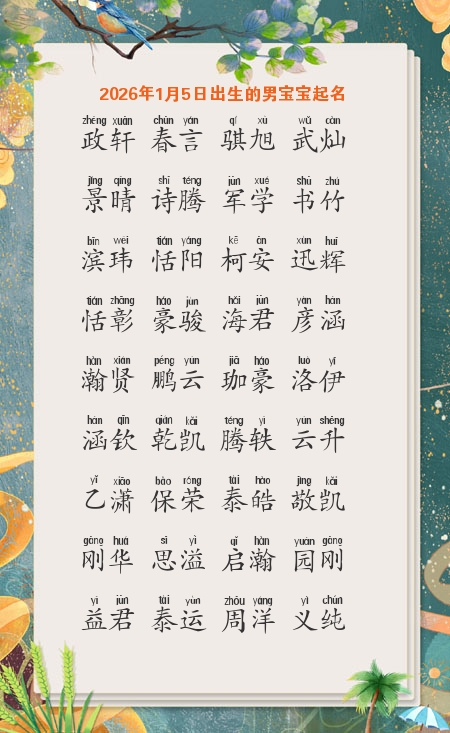 2026年1月5日出生的男宝宝起名
zhéng xuān chūn yán qí xù wǔ càn
政轩 春言 骐旭 武灿
jǐng qíng shī téng jūn xué shū zhú
景晴 诗腾 军学 书竹
bīn wěi tián yáng kē ān xùn huī
滨玮 恬阳 柯安 迅辉
tián zhāng háo jùn hǎi jūn yàn hán
恬彰 豪骏 海君 彦涵
hàn xián péng yún jiā háo luò yī
瀚贤 鹏云 珈豪 洛伊
hán qīn qián kǎi téng yì yún shēng
涵钦 乾凯 腾轶 云升
yǐ xiāo bǎo róng tài hào jìng kǎi
乙潇 保荣 泰皓 敬凯
gāng huá sī yì qǐ hàn yuán gāng
刚华 思溢 启瀚 园刚
yì jūn tài yùn zhōu yáng yì chún
益君 泰运 周洋 义纯